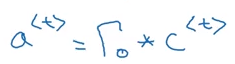 a^{<t>} = Γ_o * c^{<t>}